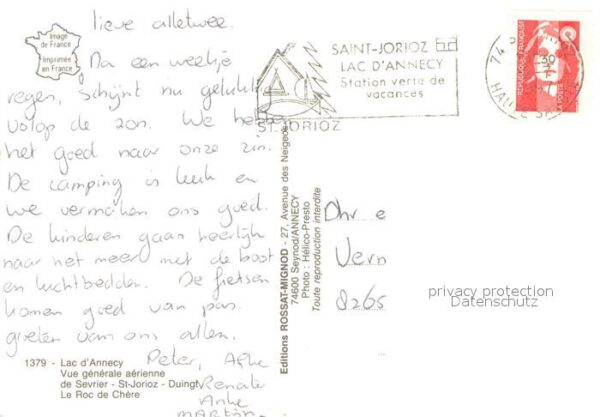 lieve alletwee.
Na een weekje
regen, Schijnt nu gelukkig
volop de zon. We hebben
het goed naar onze zin.
De camping is leuk en
we vermaken ons goed.
De kinderen gaan heerlijk
naar het meer met de boot
en luchtbedden. De fietsen
komen goed van pas.
groeten van ons allen.
Peter,
Renate
Anke
MARTÖN
Image
de France
Imprimée
en France
SAINT-JORIOZ
LAC D'ANNECY
Station verte de
vacances
ST. JORIOZ
74
30
RÉPUBLIQUE FRANÇAISE
LA POSTE
Editions ROSSAT-MIGNOD - 27, Avenue des Neiges
74600 Seynod/ANNECY
Photo : Hélico-Presto
Toute reproduction interdite
Dhr e
Vern
8265
privacy protection
Datenschutz
1379 - Lac d'Annecy
Vue générale aérienne
de Sevrier - St-Jorioz - Duingt
Le Roc de Chère